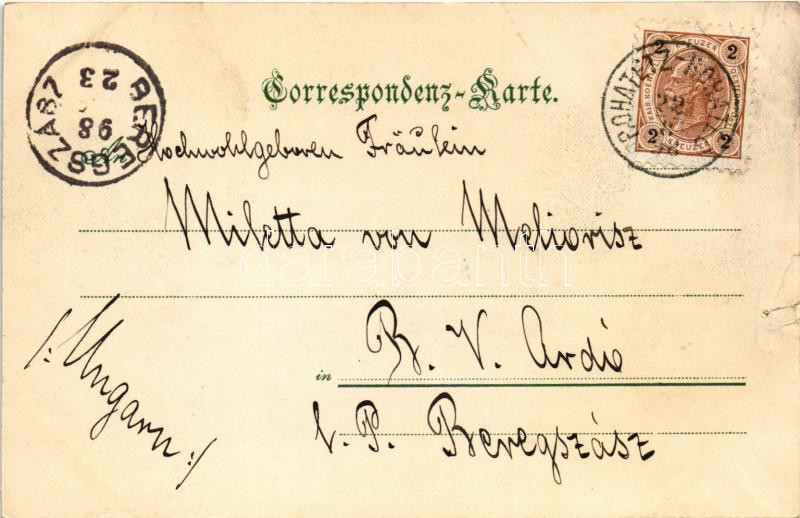 Correspondenz-Karte.
BEREGSZÁSZ
98
23
2 KREUZER 2
2 KREUZER 2
An Hochwohlgeboren Fräulein
Miletta von Meliorisz
in B. V. Ardó
l. P. Beregszász
/: Ungarn :/
darabanth